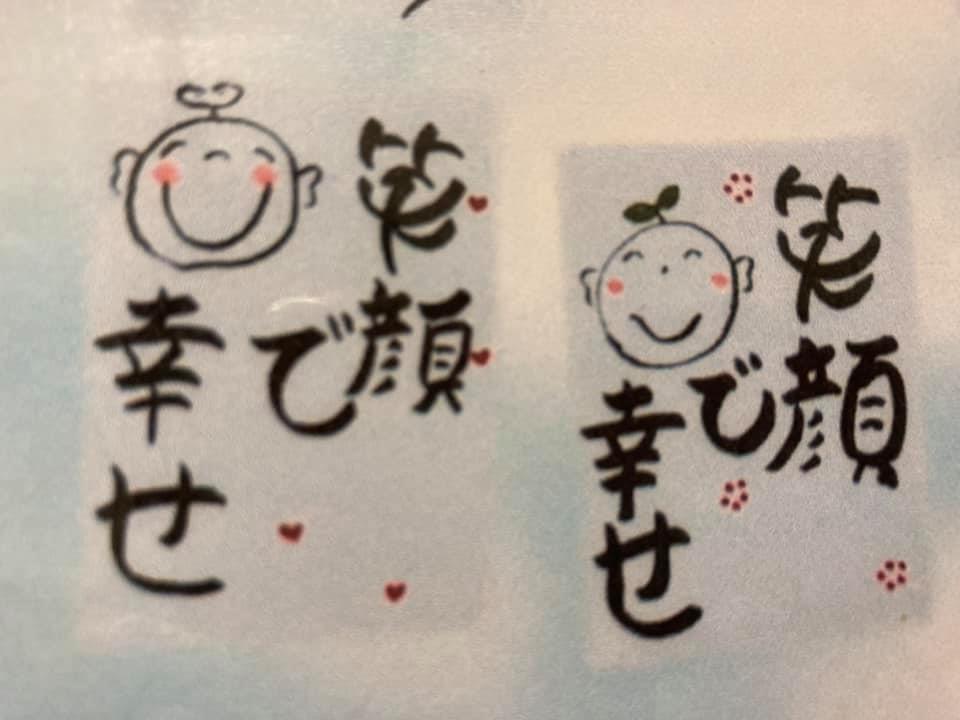 笑顔
で
幸せ
笑顔
で
幸せ